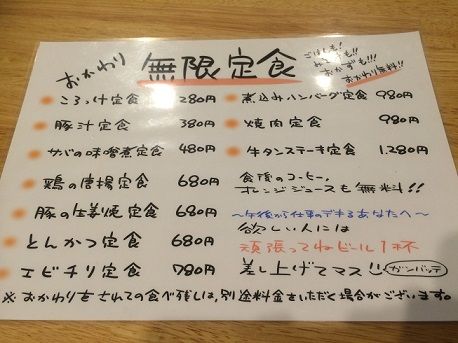 おかわり 無限定食
ごはんも!
みそ汁も!!
おかずも!!!
おかわり無料!!
ころっけ定食 280円
豚汁定食 380円
サバの味噌煮定食 480円
鶏の唐揚定食 680円
豚の生姜焼定食 680円
とんかつ定食 680円
エビチリ定食 780円
煮込みハンバーグ定食 980円
焼肉定食 980円
牛タンステーキ定食 1.280円
食後のコーヒー、
オレンジジュースも無料!!
〜午後から仕事のできるあなたへ〜
欲しい人には
頑張ってねビール1杯
差し上げてマス!! ガンバッテ
※おかわりをされての食べ残しは、別途料金をいただく場合がございます。